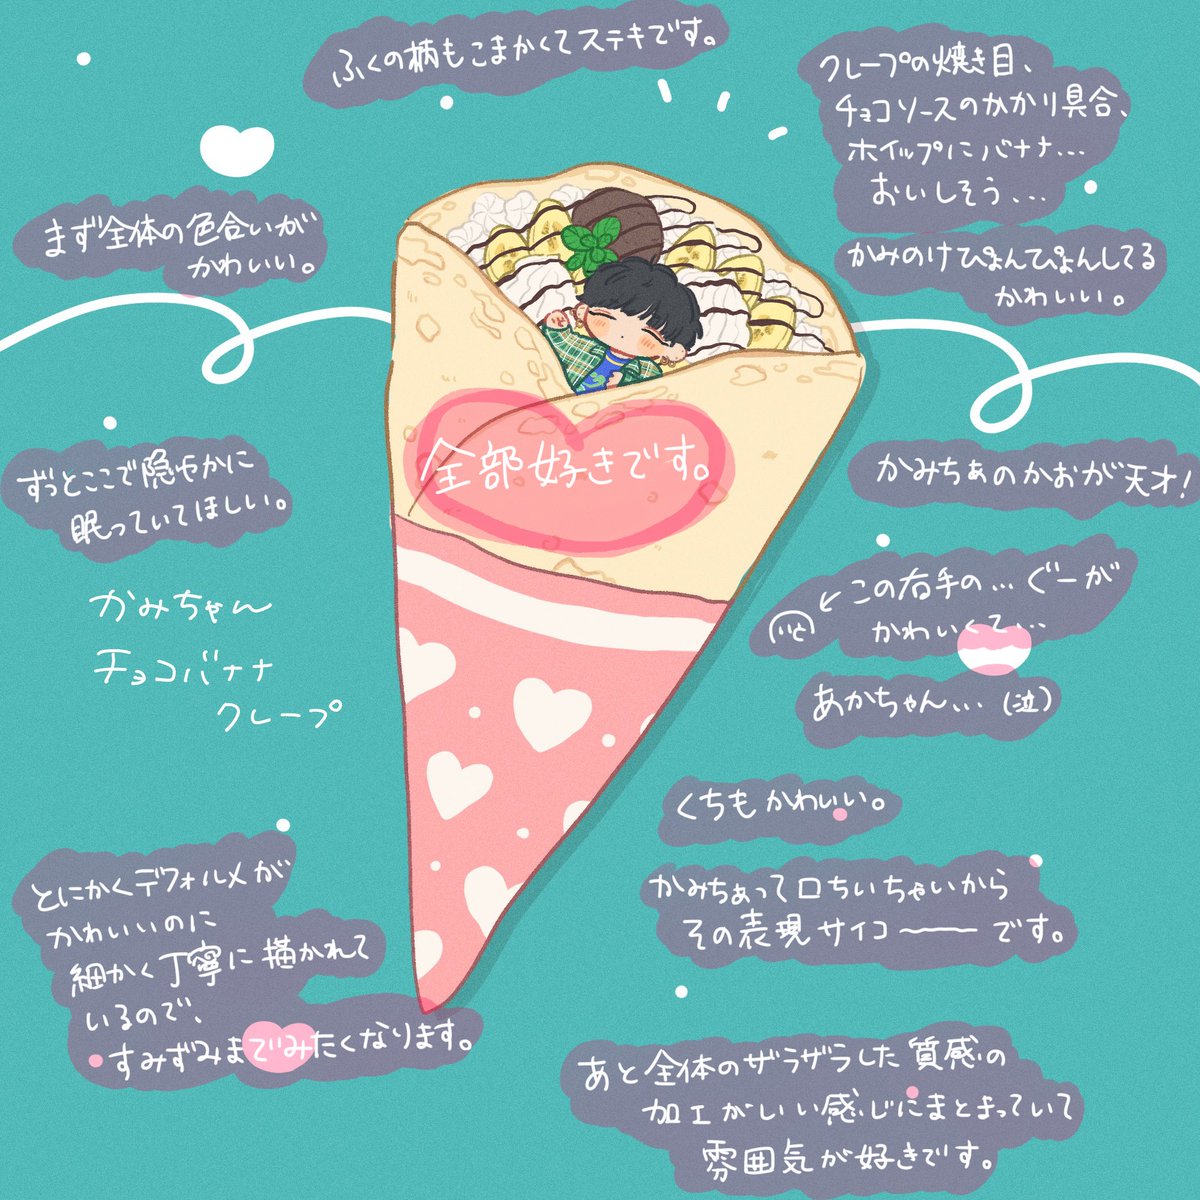 ふくの柄もこまかくてステキです。
クレープの焼き目、
チョコソースのかかり具合、
ホイップにバナナ…
おいしそう…
まず全体の色合いが
かわいい。
かみのけぴょんぴょんしてる
かわいい。
全部好きです。
ずっとここで隠やかに
眠っていてほしい。
かみちぁのかおが天才！
この右手の…ぐーが
かわいくて…
かみちゃん
チョコバナナ
クレープ
あかちゃん…(泣)
くちもかわいい。
かみちぁって口ちいちゃいから
その表現サイコーーーです。
とにかくデフォルメが
かわいいのに
細かく丁寧に描かれて
いるので、
すみずみまでみたくなります。
あと全体のザラザラした質感の
加工がいい感じにまとまっていて
雰囲気が好きです。